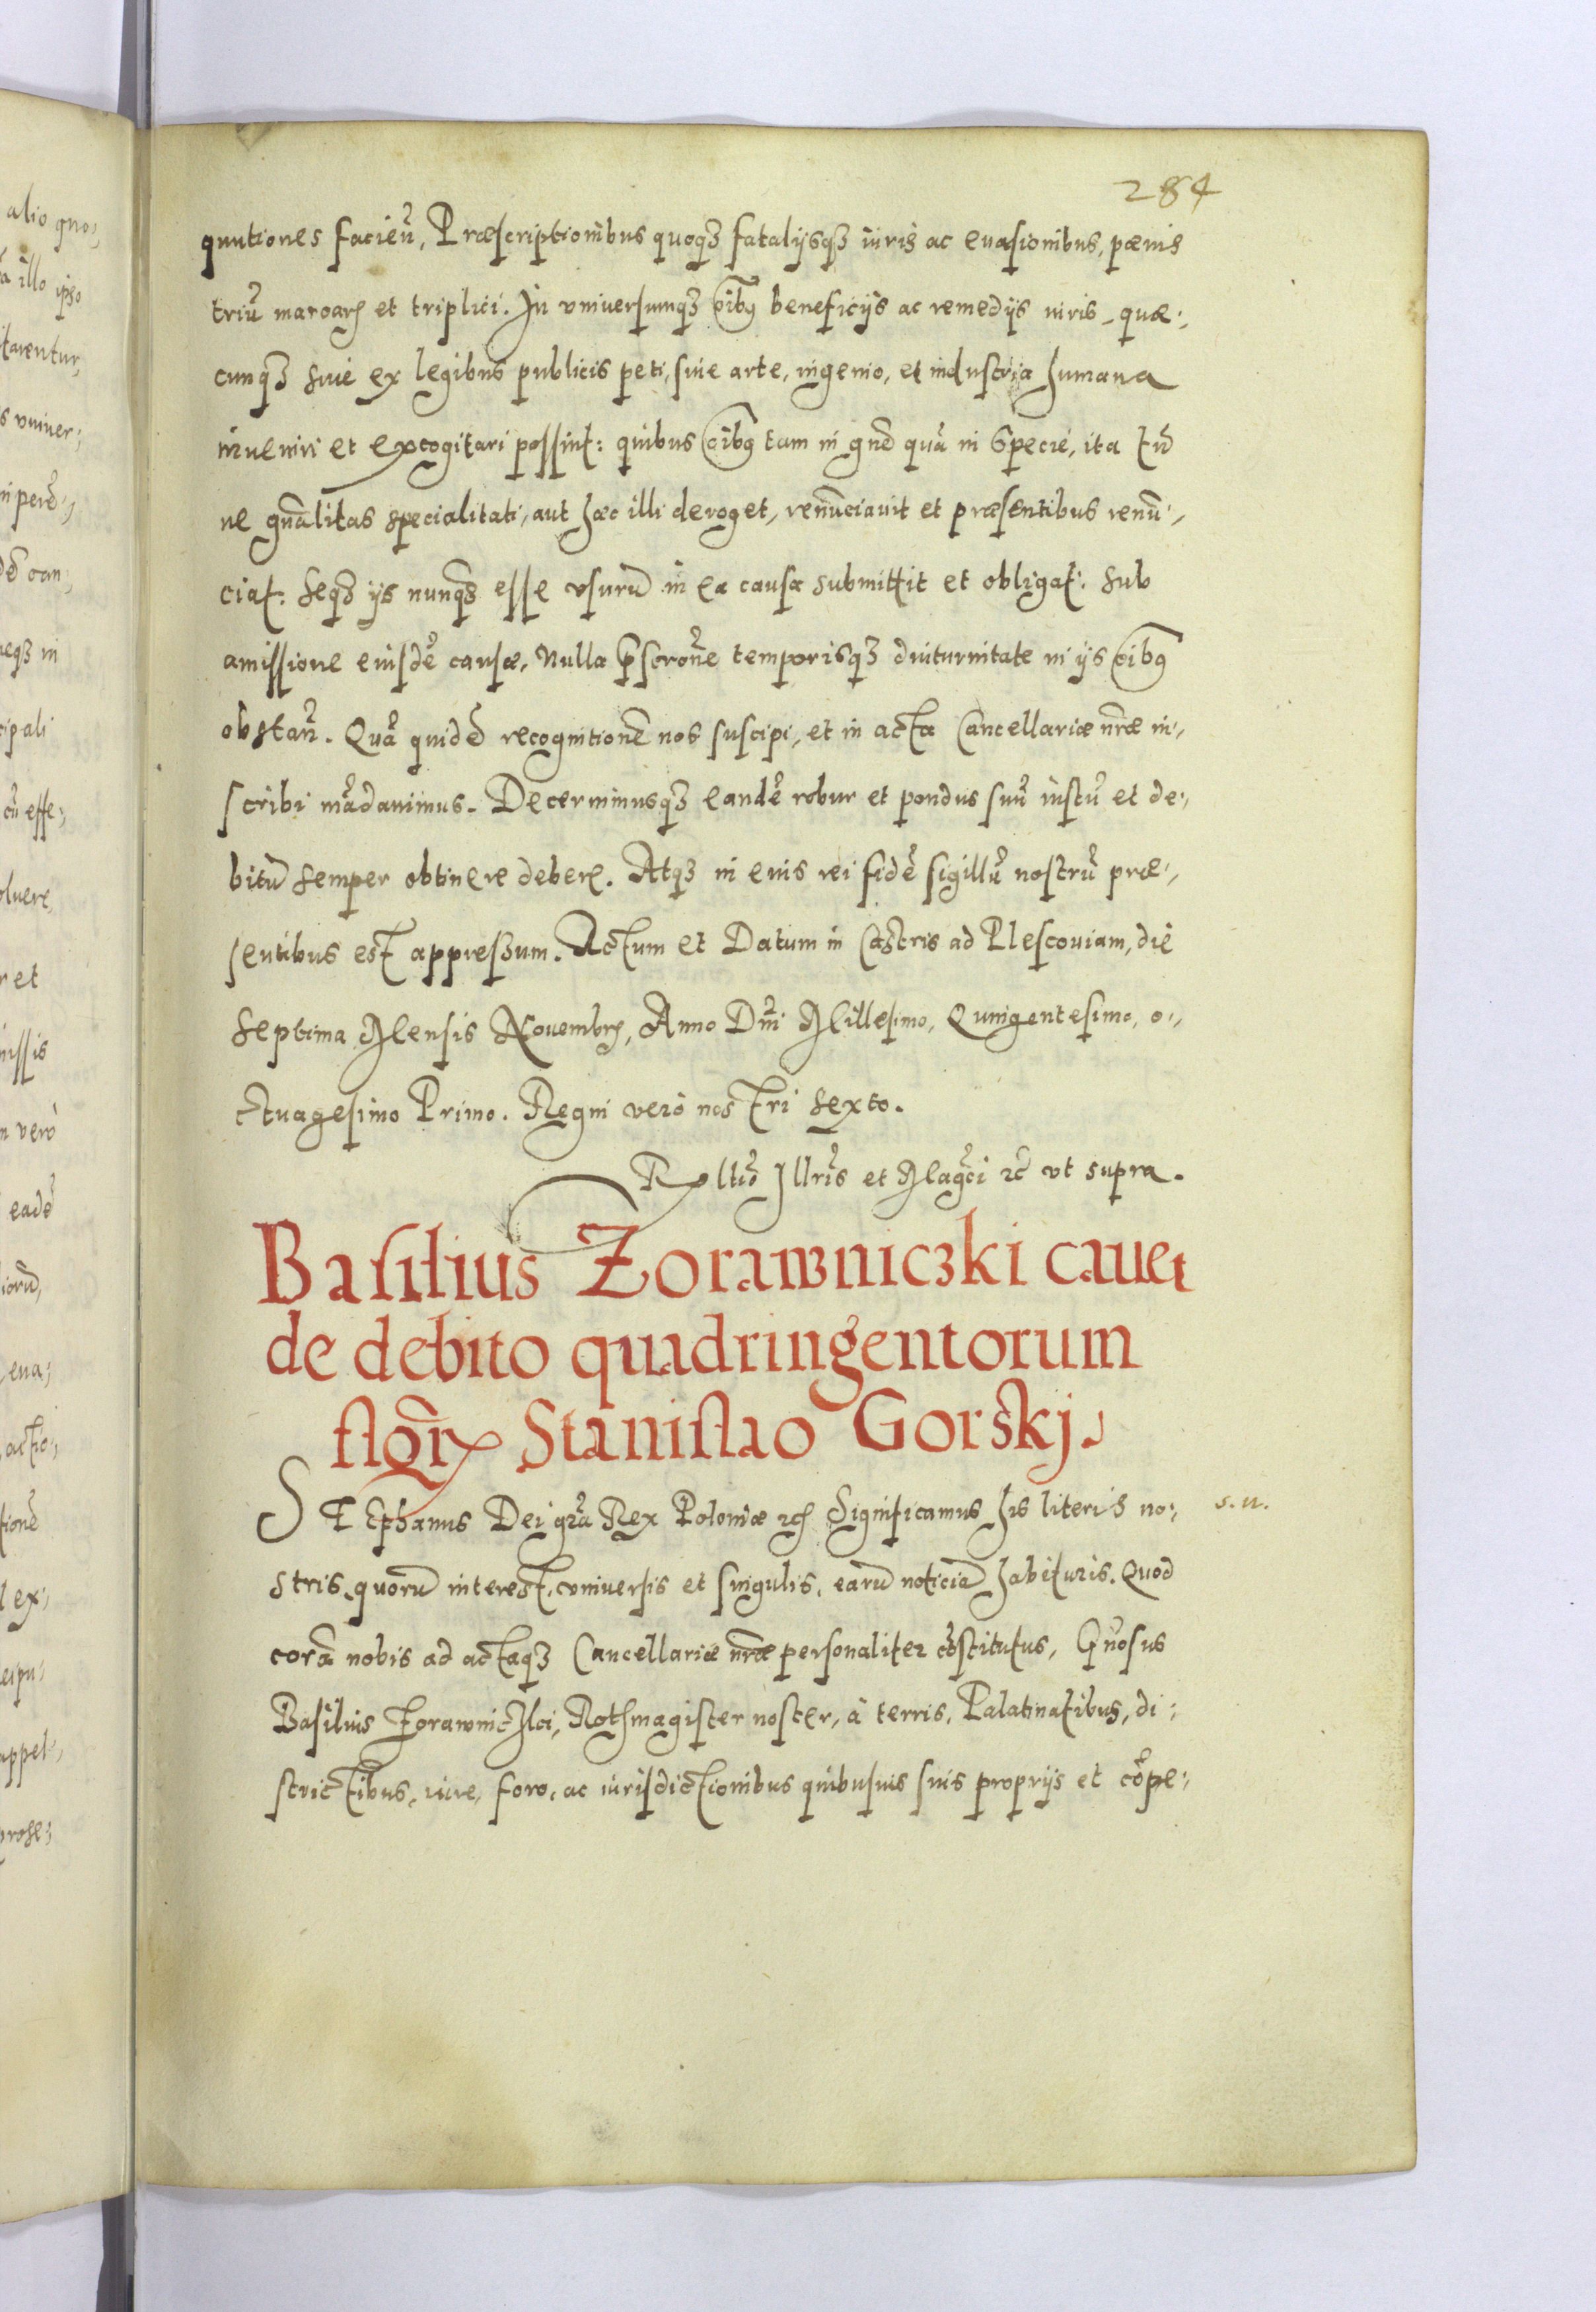 284
quutiones facieñ, Præscriptionibus quoqꝫ fatalijsqꝫ iuris ac euasionibus, pœnis
triũ marcarꝫ et triplici. In vniversumqꝫ oĩbꝰ beneficijs ac remedijs iuris, quæ-
cunqꝫ siue ex legibus publicis peti, siue arte, ingenio, et industria humana
inueniri et excogitari possint: quibus oĩbꝰ tam in gñe quã in Specie, ita tñ
ne gñalitas specialitati, aut hæc illi deroget, renũciauit et præsentibus renũ-
ciat. Seqꝫ ijs nunqꝫ esse vsurũ in ea causa submittit et obligat. Sub
amissione eiusdẽ causæ, Nulla p̃scrõne temporisqꝫ diuturnitate in ijs oĩbꝰ
obstañ. Quã quidẽ recognitionẽ nos suscipi, et in acta Cancellariæ nr̃æ in-
scribi mãdauimus. Decernimusqꝫ eandẽ robur et pondus suũ iustũ et de-
bitũ semper obtinere debere. Atqꝫ in euis rei fidẽ sigillũ nostrũ præ-
sentibus est appressum. Actum et Datum in Castris ad Plescouiam, die
Septima Mensis Nouembrꝫ, Anno Dñi Millesimo, Quingentesimo, o-
ctuagesimo Primo. Regni verò nostri sexto.
Rltiõ Illris et Magci ꝛc̃ vt supra.
Basilius Zorawniczki cauet
de debito quadringentorum
flor̃ꝝ Stanislao Gorskj.
STEphanus Dei gr̃a Rex Poloniæ ꝛcꝫ Significamus his literis no-
s.n.
stris, quorũ interest, vniversis et singulis, earũ noticiã habituris. Quod
corã nobis ad actaqꝫ Cancellariæ nr̃æ personaliter cõstitutus, Gñosus
Basilius Zorawnicki, Rothmagister noster, à terris, Palatinatibus, di-
strictibus, iure, foro, ac iurisdictionibus quibusuis suis proprijs et cõpe-